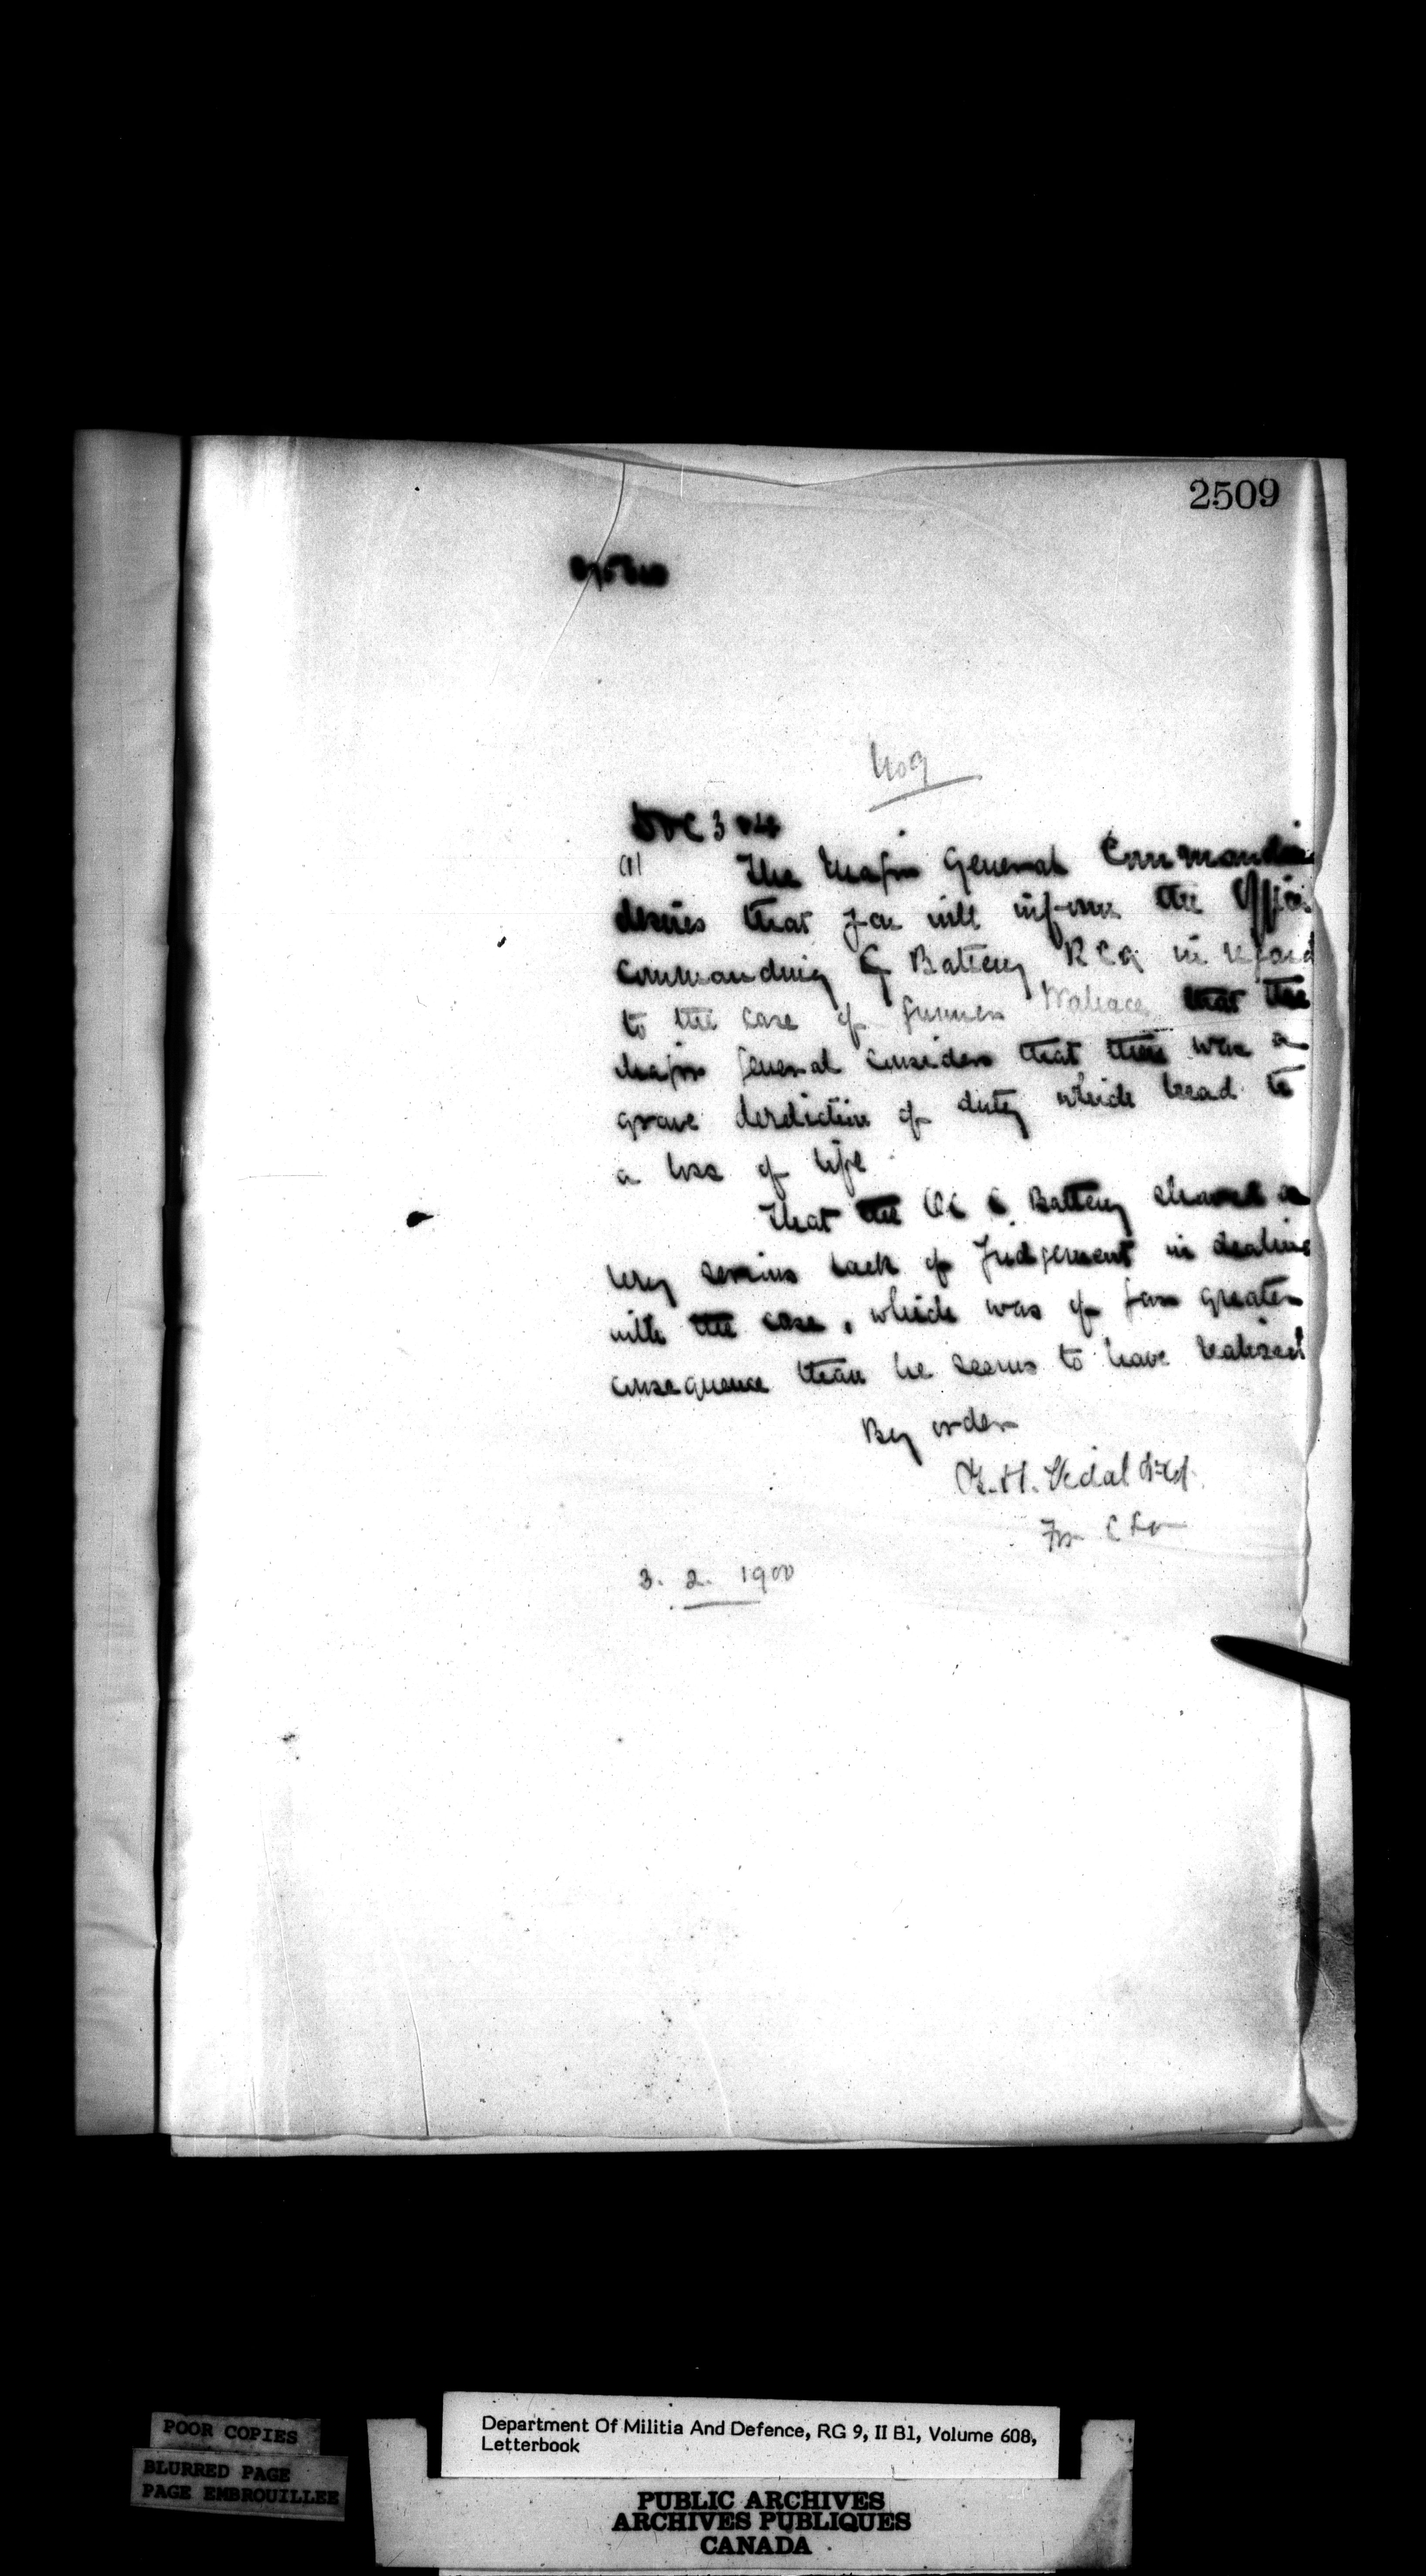 2509
DOC 3 & 4
(1) The Major General Commanding
desires that you will inform the Officer
commanding C Battery RCA in regard
to the case of Gunner Wallace that the
Major General considers that there was a
grave derelictiion of duty which lead to
a loss of life.
That the OC C Battery showed a
very serious lack of Judgement in dealing
with the case, which was of far greater
consequence than he seems to have realized
By order
B.H. Vidal
For C S O
3. 2. 1900
POOR COPIES
BLURRED PAGE
PAGE EMBROUILLEE
Department Of Militia And Defence, RG 9, II B1, Volume 608,
Letterbook
PUBLIC ARCHIVES
ARCHIVES PUBLIQUES
CANADA